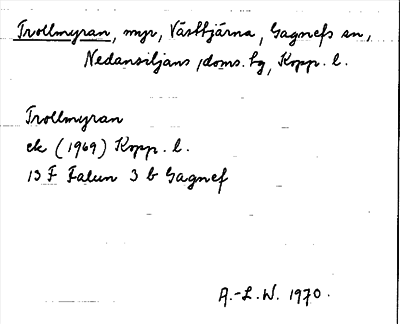 Trollmyran, myr, Västtjärna, Gagnefs sn,
Nedansiljans doms. hg, Kopp. l.
Trollmyran
ek (1969) Kopp. l.
13 F Falun 3 b Gagnef
A.-L.W. 1970.